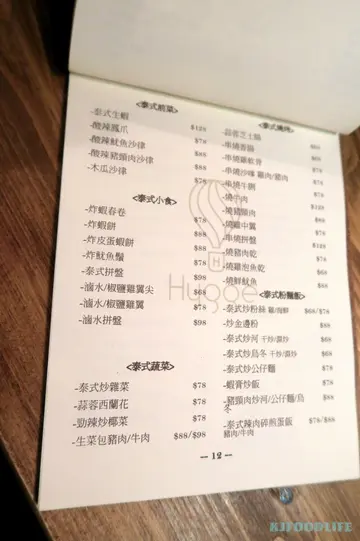 <泰式前菜>
-泰式生蝦 $128
-酸辣鳳爪 $78
-酸辣魷魚沙律 $88
-酸辣豬頸肉沙律 $88
-木瓜沙律 $78
<泰式小食>
-炸蝦春卷 $78
-炸蝦餅 $88
-炸皮蛋蝦餅 $88
-炸魷魚鬚 $78
-泰式拼盤 $98
-滷水/椒鹽雞翼尖 $68
-滷水/椒鹽雞翼 $78
-滷水拼盤 $98
<泰式蔬菜>
-泰式炒雜菜 $78
-蒜蓉西蘭花 $78
-勁辣炒椰菜 $78
-生菜包豬肉/牛肉 $88/$98
<泰式燒烤>
-蒜蓉芝士腸
-串燒香腸
-串燒雞軟骨
-串燒沙嗲 雞肉/豬肉
-串燒牛脷
-燒牛肉
-燒豬頸肉
-燒雞中翼
-串燒拼盤 $128
-燒豬肉乾 $78
-燒雞泡魚乾 $68
-燒鮮魷魚 $88
<泰式粉麵飯>
-泰式炒粉絲 雞/海鮮 $68/$78
-炒金邊粉 $88
-泰式炒河 干炒/濕炒 $78
-泰式炒烏冬 干炒/濕炒 $78
-泰式炒公仔麵 $78
-蝦膏炒飯 $78
-豬頸肉炒河/公仔麵/烏冬 $88
-泰式辣肉碎煎蛋飯 $78/$88
豬肉/牛肉
Hygge
-- 12 --
RJFOODLIFE